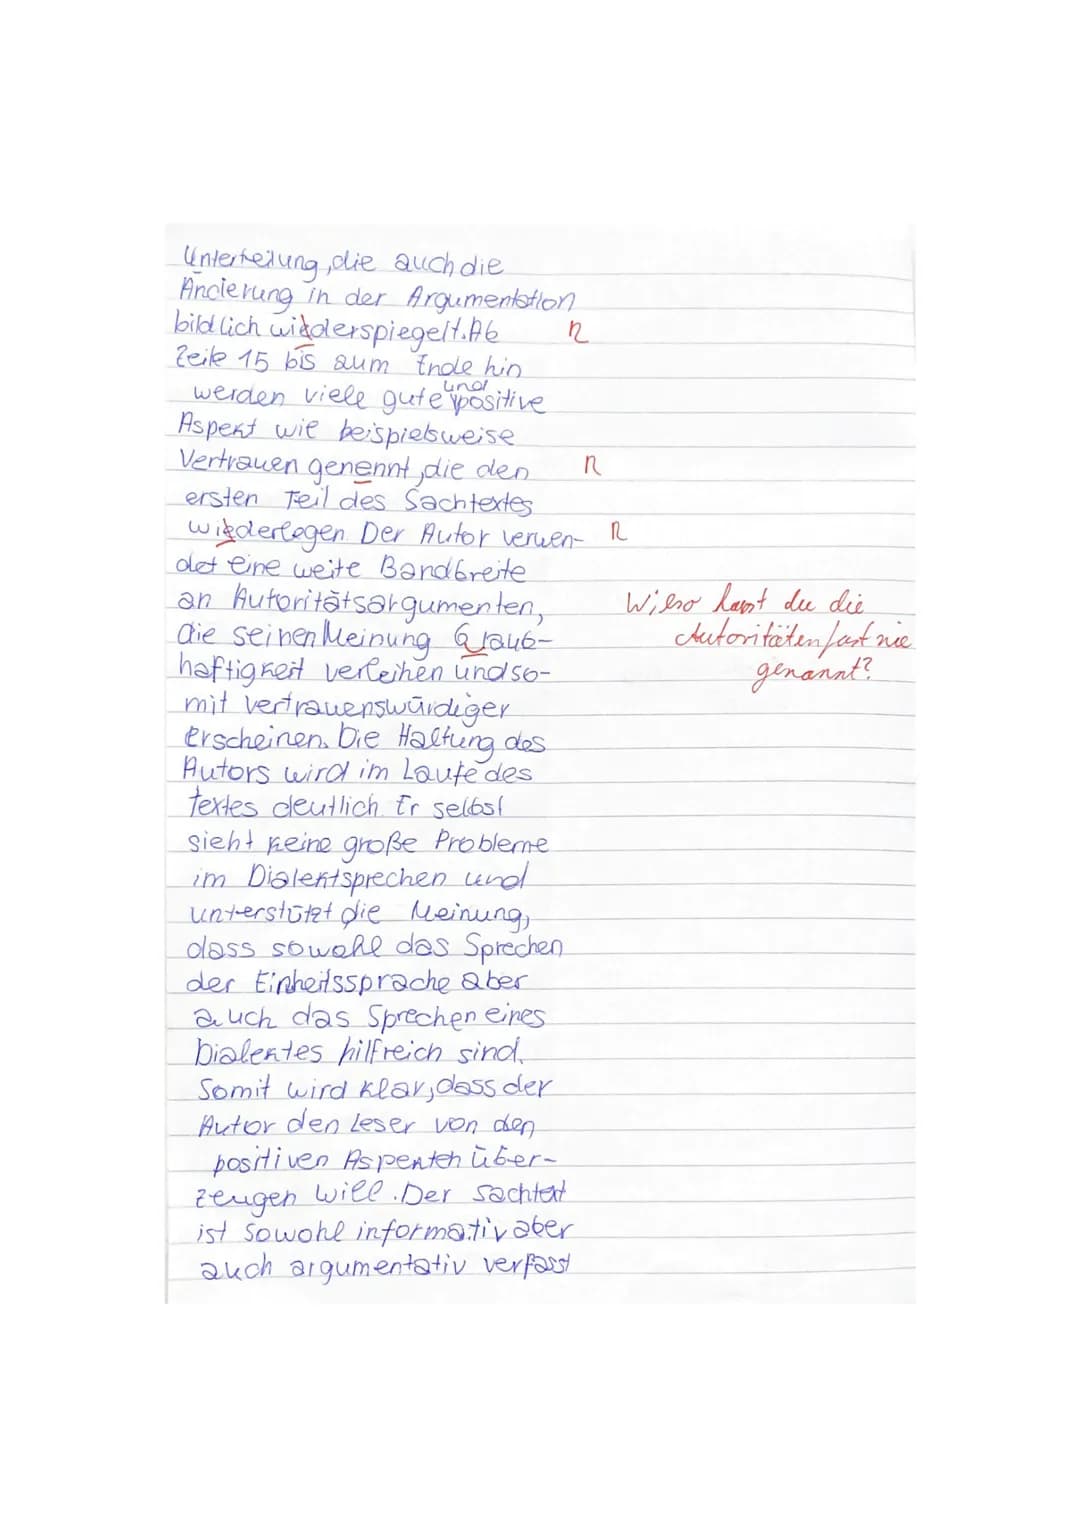 Unterteilung, die auch die
Änderung in der Argumentation
bildlich wiederspiegelt. Ab R
Zeile 15 bis zum Ende hin
werden viele gute und positive
Aspekt wie beispielsweise
Vertrauen genennt, die den R
ersten Teil des Sachtextes
wiederlegen. Der Autor verwen- R
det eine weite Bandbreite
an Autoritätsargumenten, Wieso hast du die
die seinen Meinung Glaub- Autoritäten fast nie
haftigkeit verleihen und so- genannt?
mit vertrauenswürdiger
erscheinen. Die Haltung des
Autors wird im Laufe des
Textes deutlich. Er selbst
sieht keine große Probleme
im Dialektsprechen und
unterstützt die Meinung,
dass sowohl das Sprechen
der Einheitssprache aber
auch das Sprechen eines
Dialektes hilfreich sind.
Somit wird klar, dass der
Autor den Leser von den
positiven Aspekten über-
zeugen will. Der Sachtext
ist sowohl informativ aber
auch argumentativ verfasst